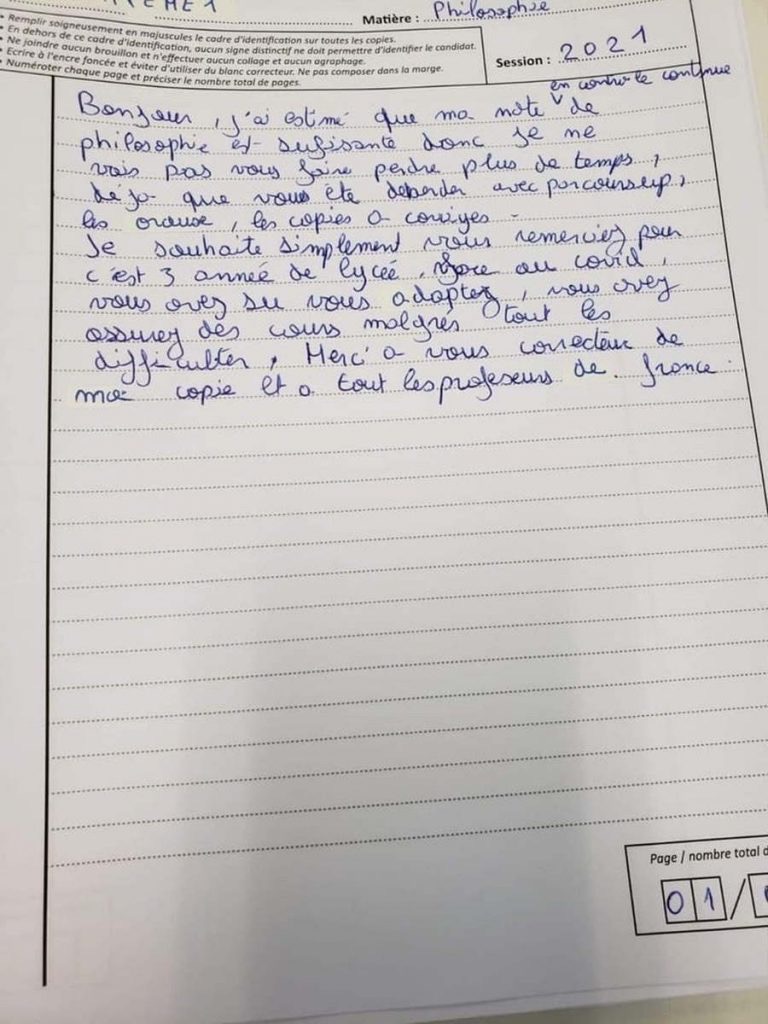 Matière : Philosophie
• Remplir soigneusement en majuscules le cadre d'identification sur toutes les copies.
• En dehors de ce cadre d'identification, aucun signe distinctif ne doit permettre d'identifier le candidat.
• Ne joindre aucun brouillon et n'effectuer aucun collage et aucun agraphage.
• Ecrire à l'encre foncée et éviter d'utiliser du blanc correcteur. Ne pas composer dans la marge.
• Numéroter chaque page et préciser le nombre total de pages.
Session : 2021
en controle continue
Bonjour, j'ai estimé que ma note de
philosophie est sufissante donc je ne
vais pas vous faire perdre plus de temps,
déja que vous ête deborder avec parcoursup,
les orause, les copies a corriges.
Je souhaite simplement vous remerciez pour
c'est 3 anneé de lyceé. face au covid,
vous avez su vous adaptez, vous avez
assurez des cours malgrés tout les
difficulter, Merci a vous correcteur de
ma copie et a tout les profeseurs de france.
Page / nombre total d
01 /